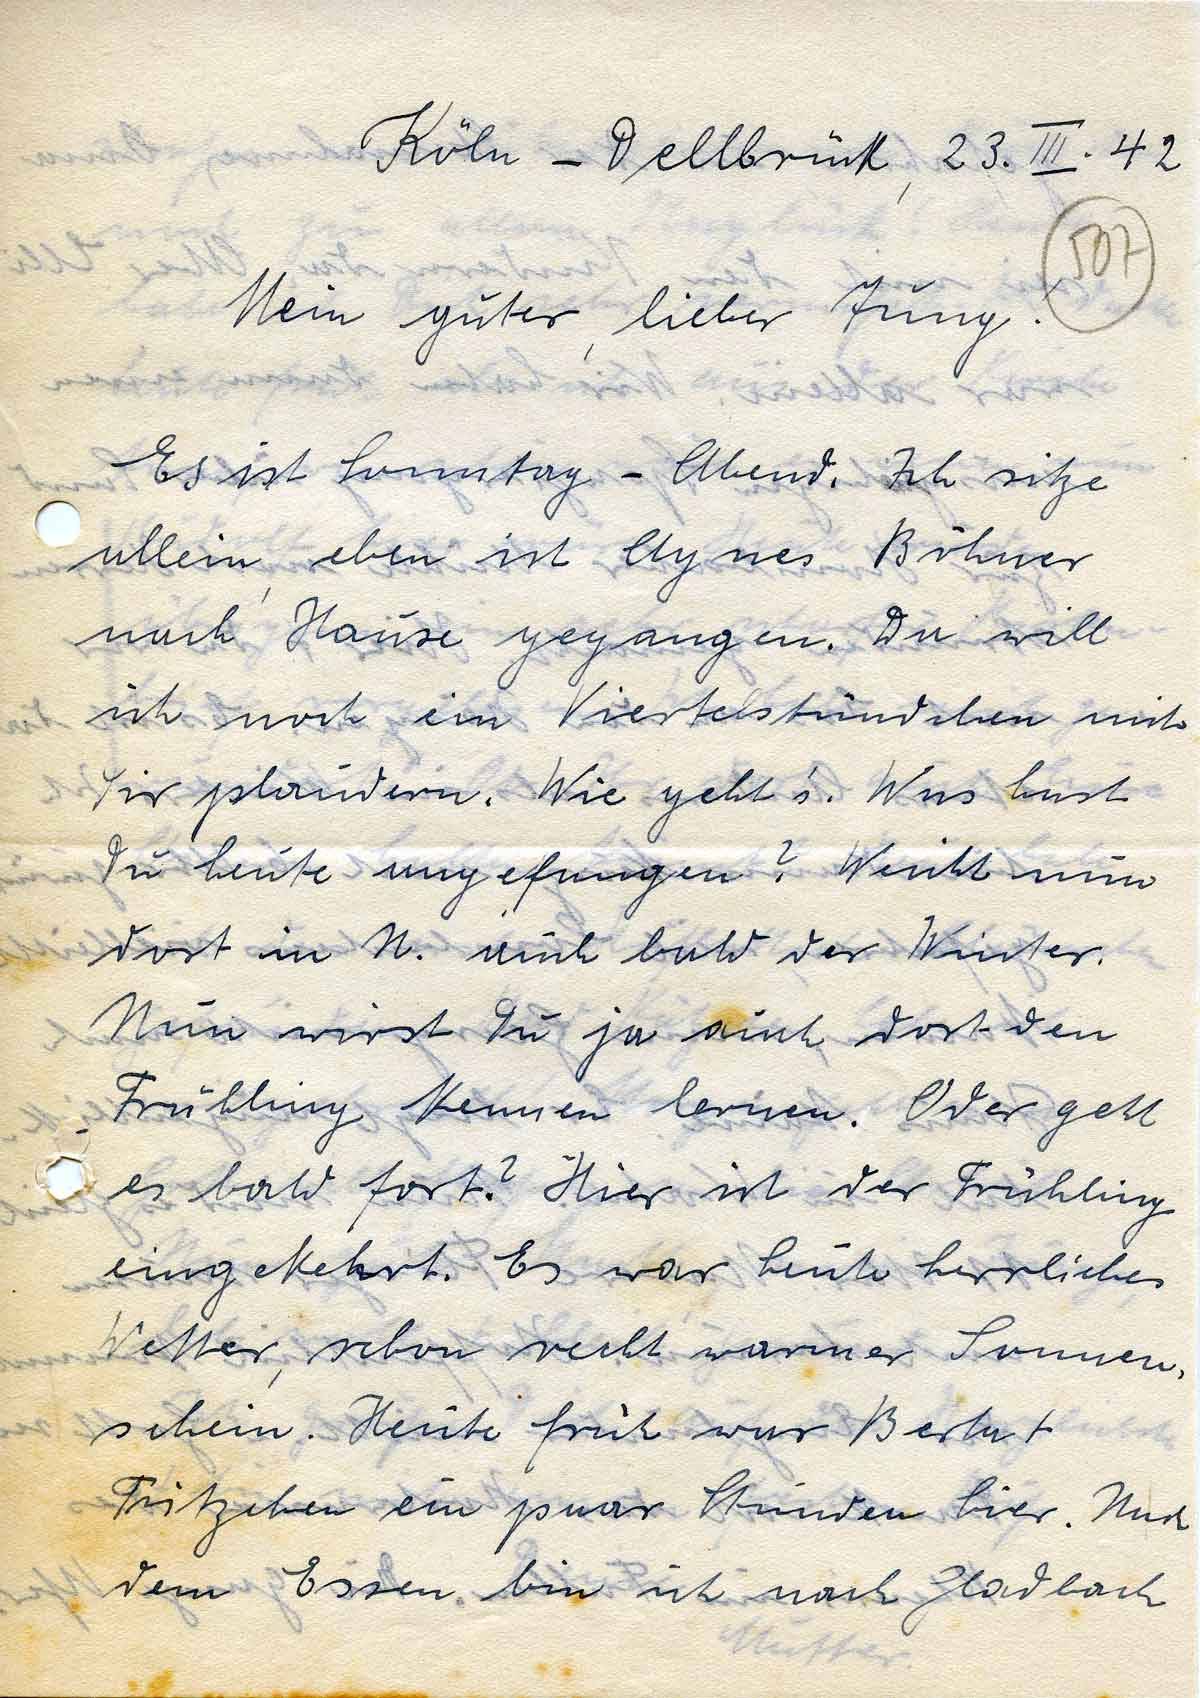 Köln - Dellbrück, 23. III. 42
507
Mein guter, lieber Jung!
Es ist Sonntag - Abend. Ich sitze
allein, eben ist Agnes Böhner
nach Hause gegangen. Da will
ich noch ein Viertelstündchen mit
Dir plaudern. Wie geht's. Was hast
Du heute angefangen? Weicht nun
dort in N. auch bald der Winter.
Nun wirst Du ja auch dort den
Frühling kennen lernen. Oder geht
es bald fort? Hier ist der Frühling
eingekehrt. Es war heute herrliches
Wetter, schon recht warmer Sonnen-
schein. Heute früh war Berta +
Fritzchen ein paar Stunden hier. Nach
dem Essen bin ich nach Gladbach
Mutter.